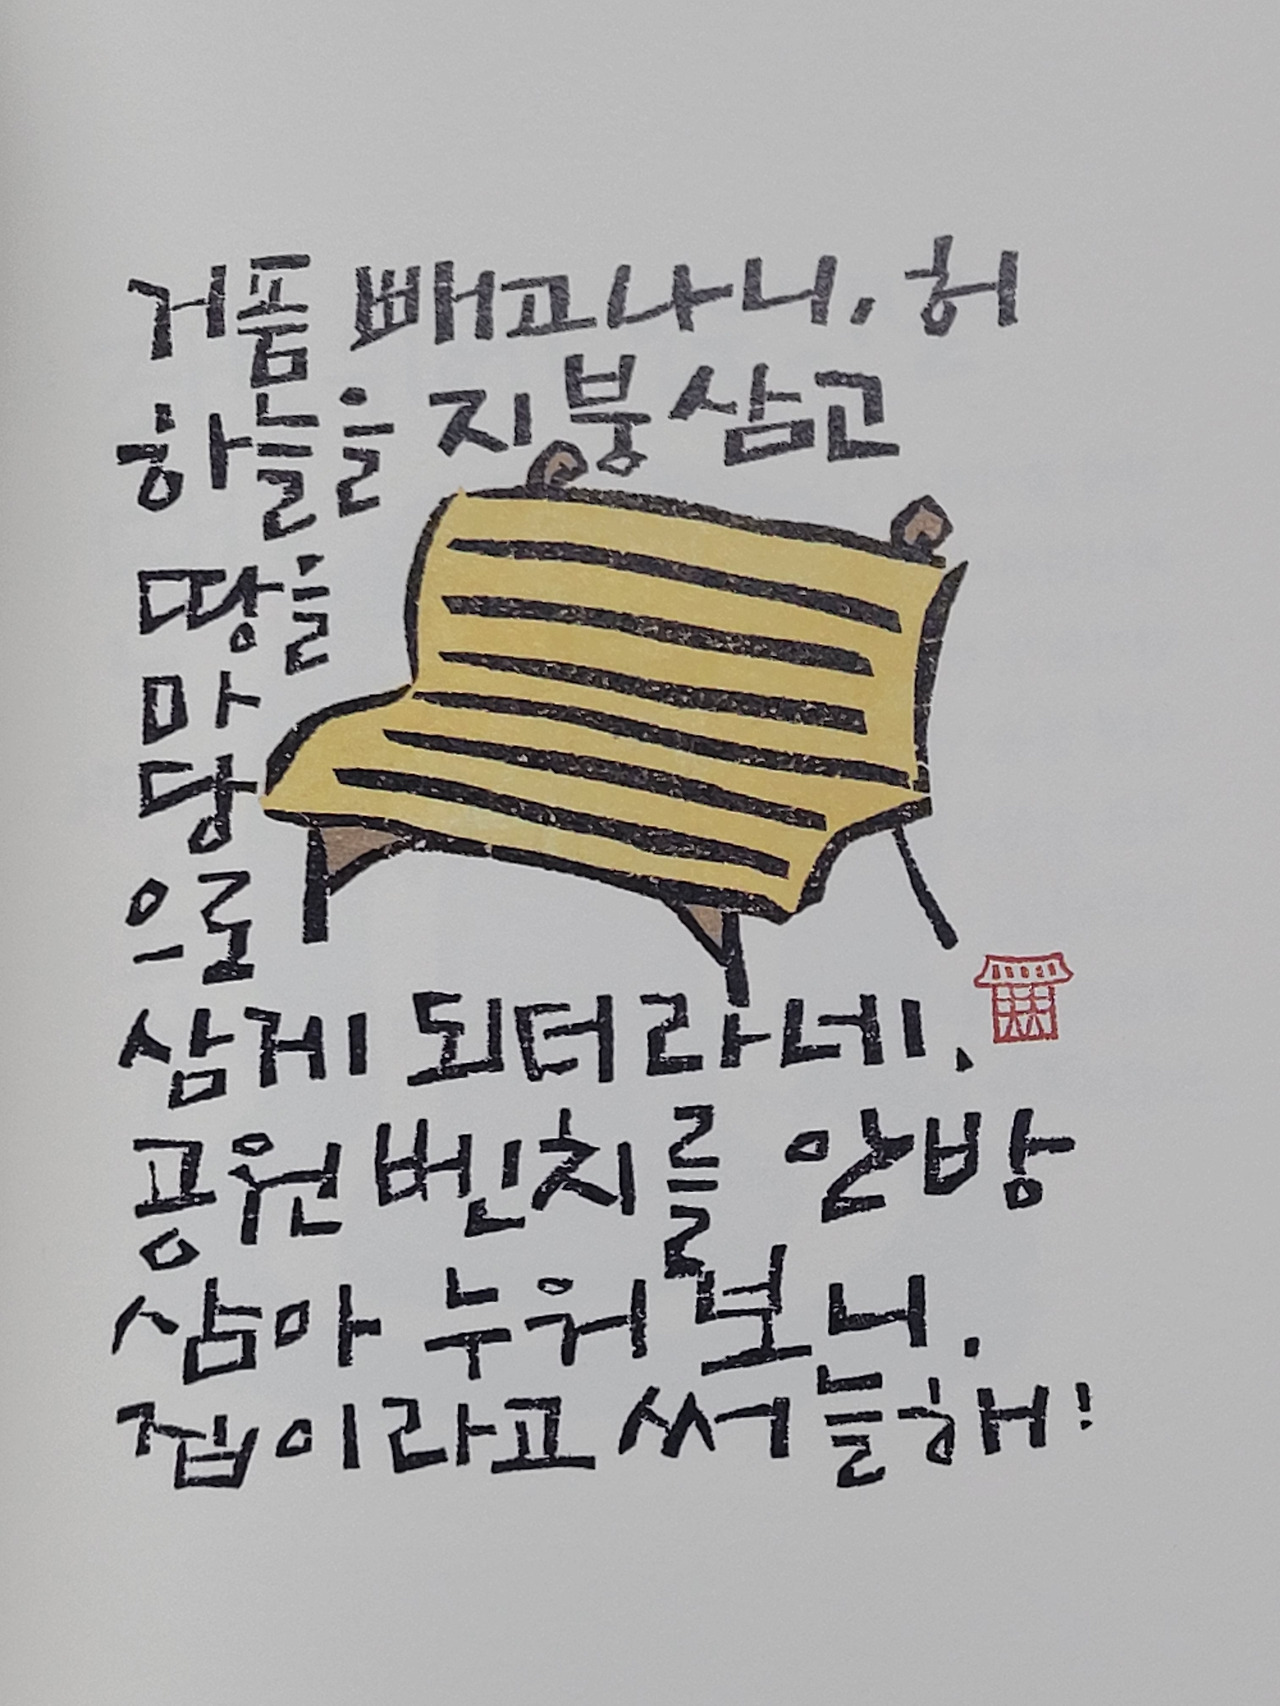 거품 빼고나니, 허
하늘을 지붕삼고
땅을
마
당
으로
삼게 되더라네.
공원벤치를 안방
삼아 누워보니.
집이라고 써늘해!